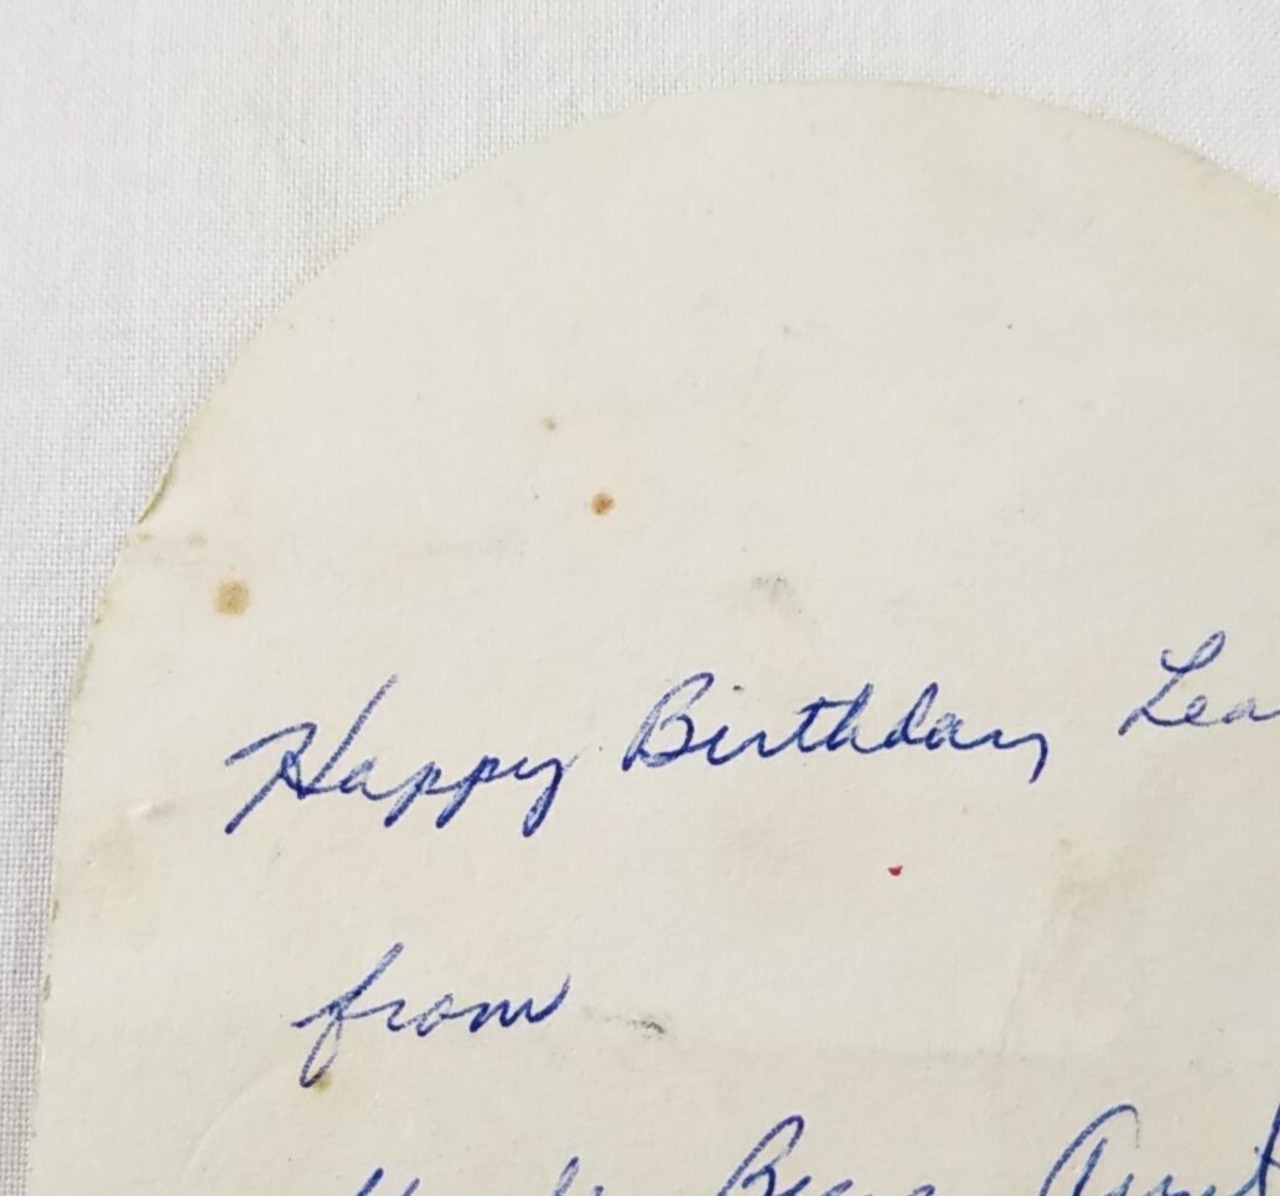 Happy Birthday Lea
from
Aunt